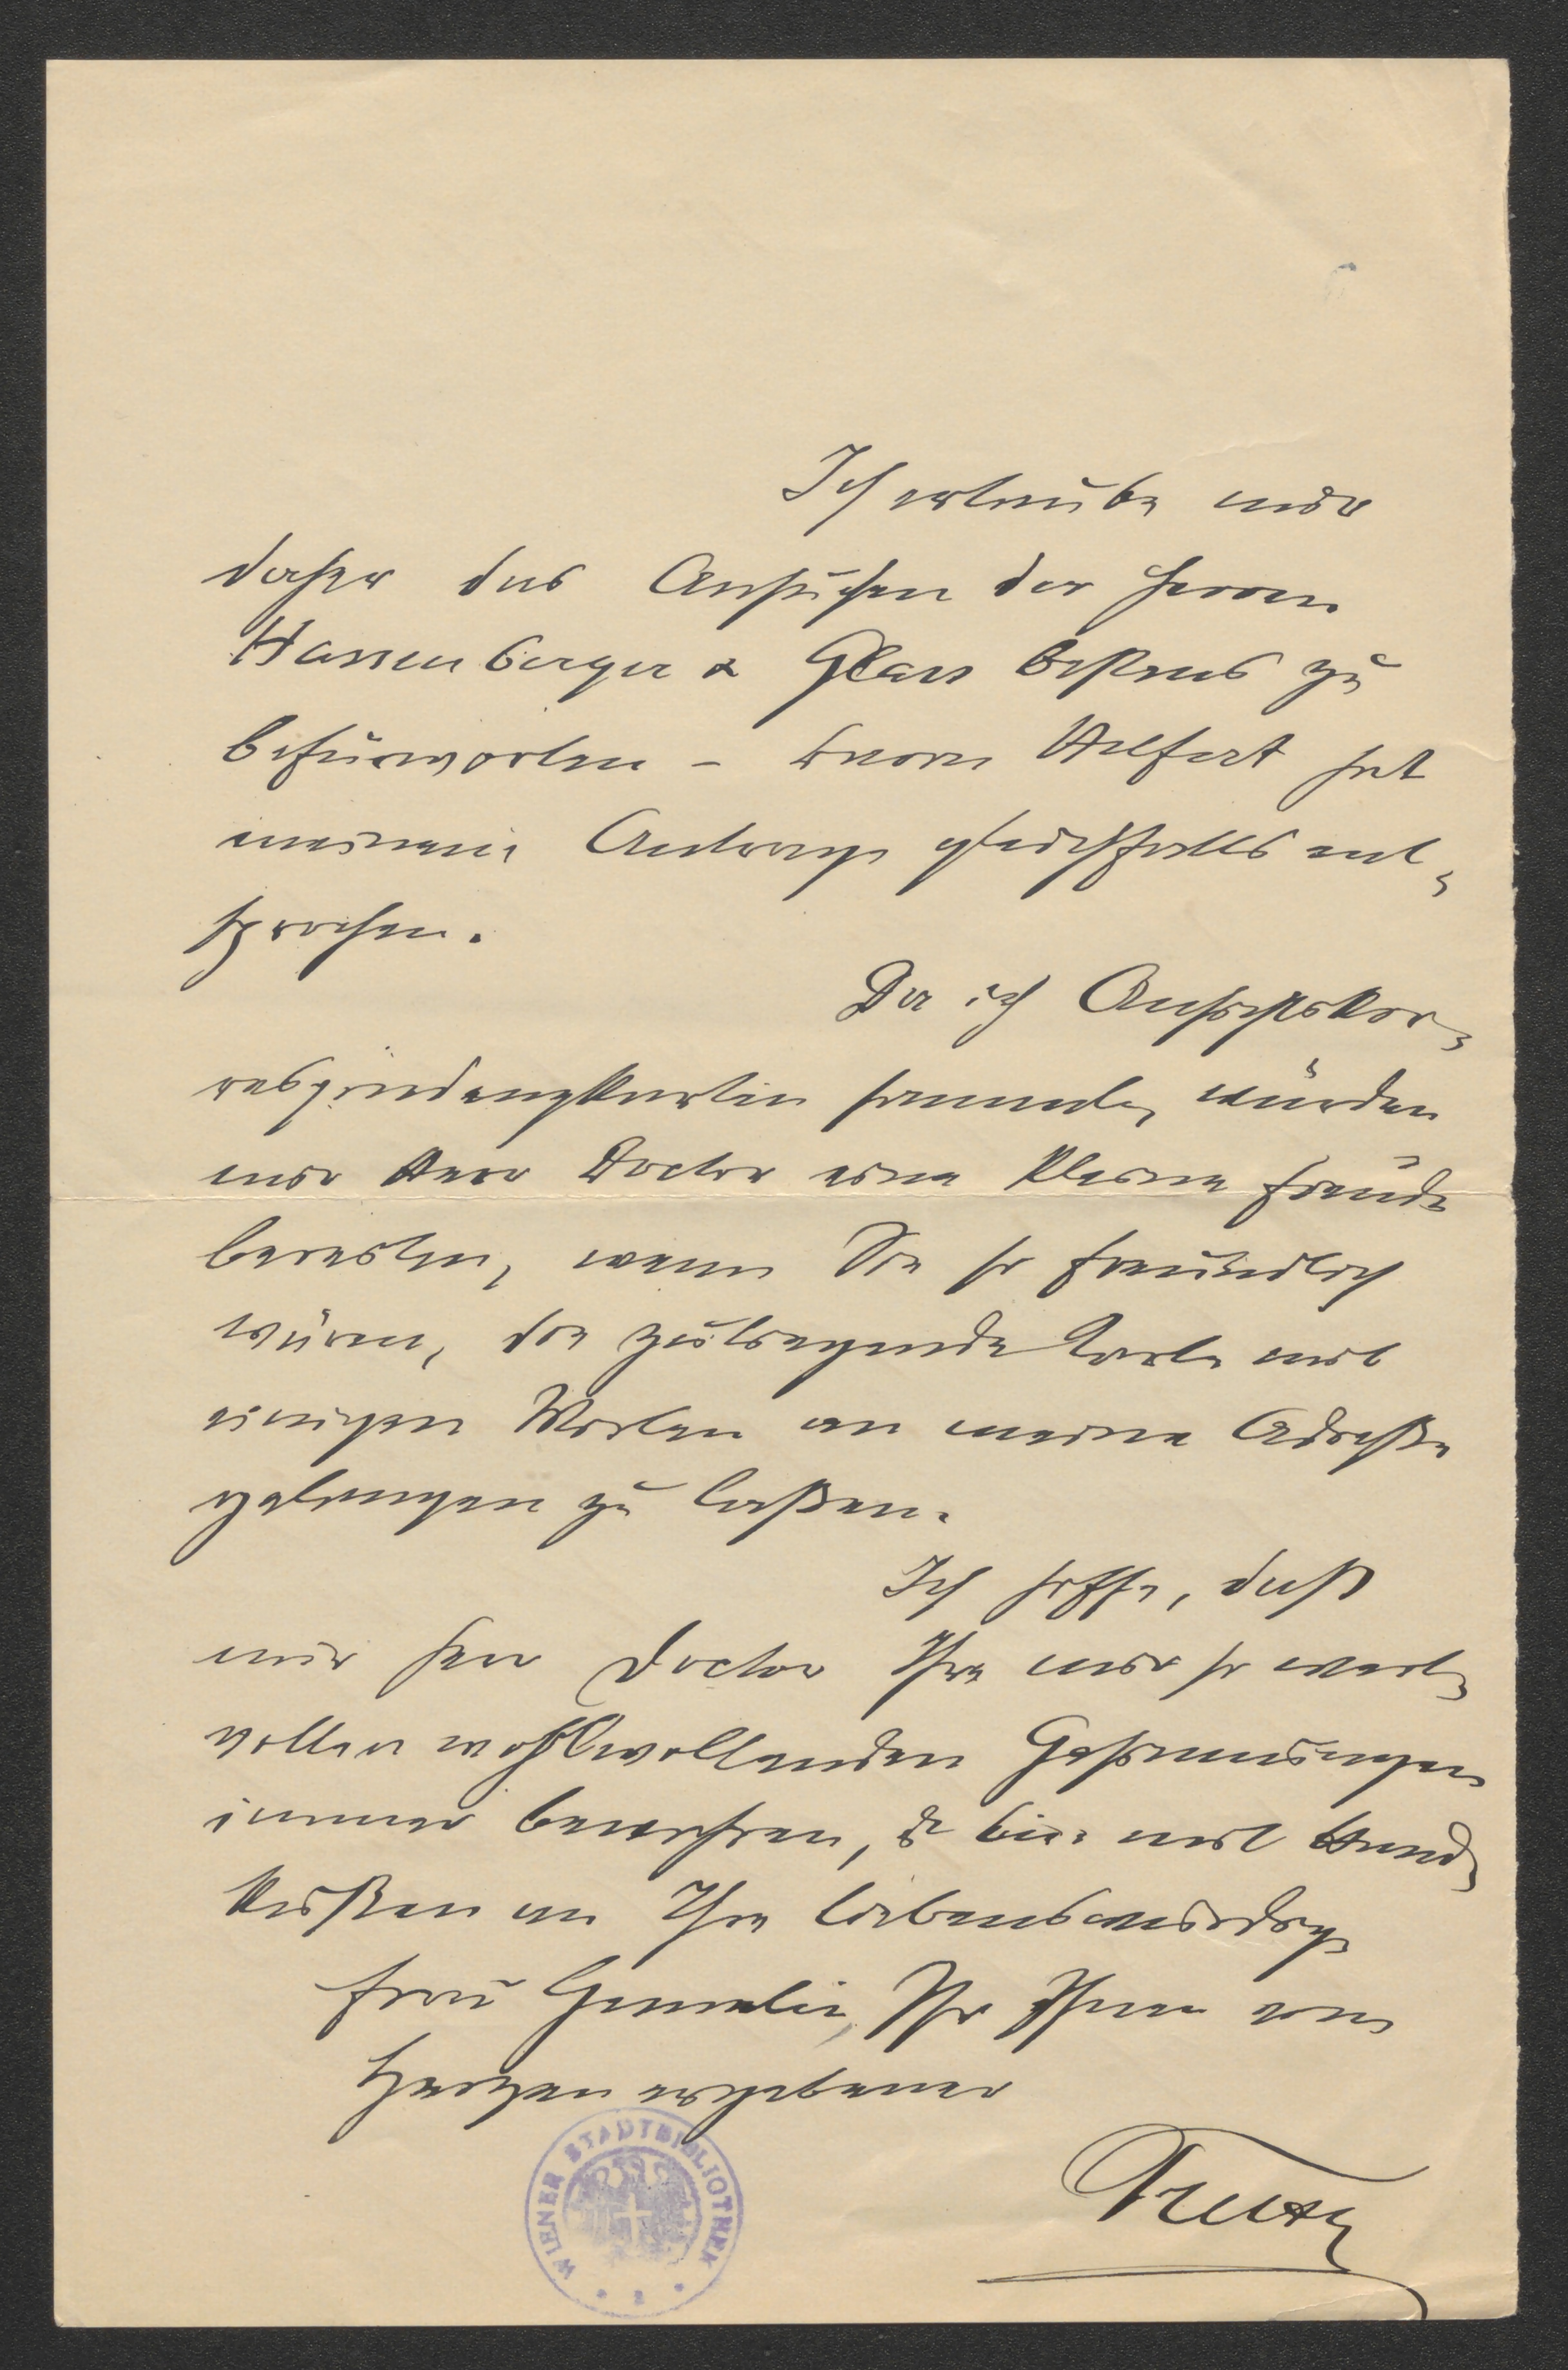 Ich erlaube mir
daher das Ansuchen der Herren
Hassenberger & Glass bestens zu
befürworten – Baron Helfert hat
meinem Antrage gleichfalls ent-
sprochen.
Da ich Ansichtskor-
respondenzkarten sammle, würden
mir Herr Doctor eine kleine Freude
bereiten, wenn Sie so freundlich
wären, die zuliegende Karte mit
einigen Worten an meine Adresse
gelangen zu lassen.
Ich hoffe, daß
mir Herr Doctor Ihre mir so wert-
vollen wohlwollenden Gesinnungen
immer bewahren, & bin mit Hand-
küssen an Ihre liebenswürdige
Frau Gemalin, Ihr Ihnen vom
Herzen ergebener
WIENER STADTBIBLIOTHEK